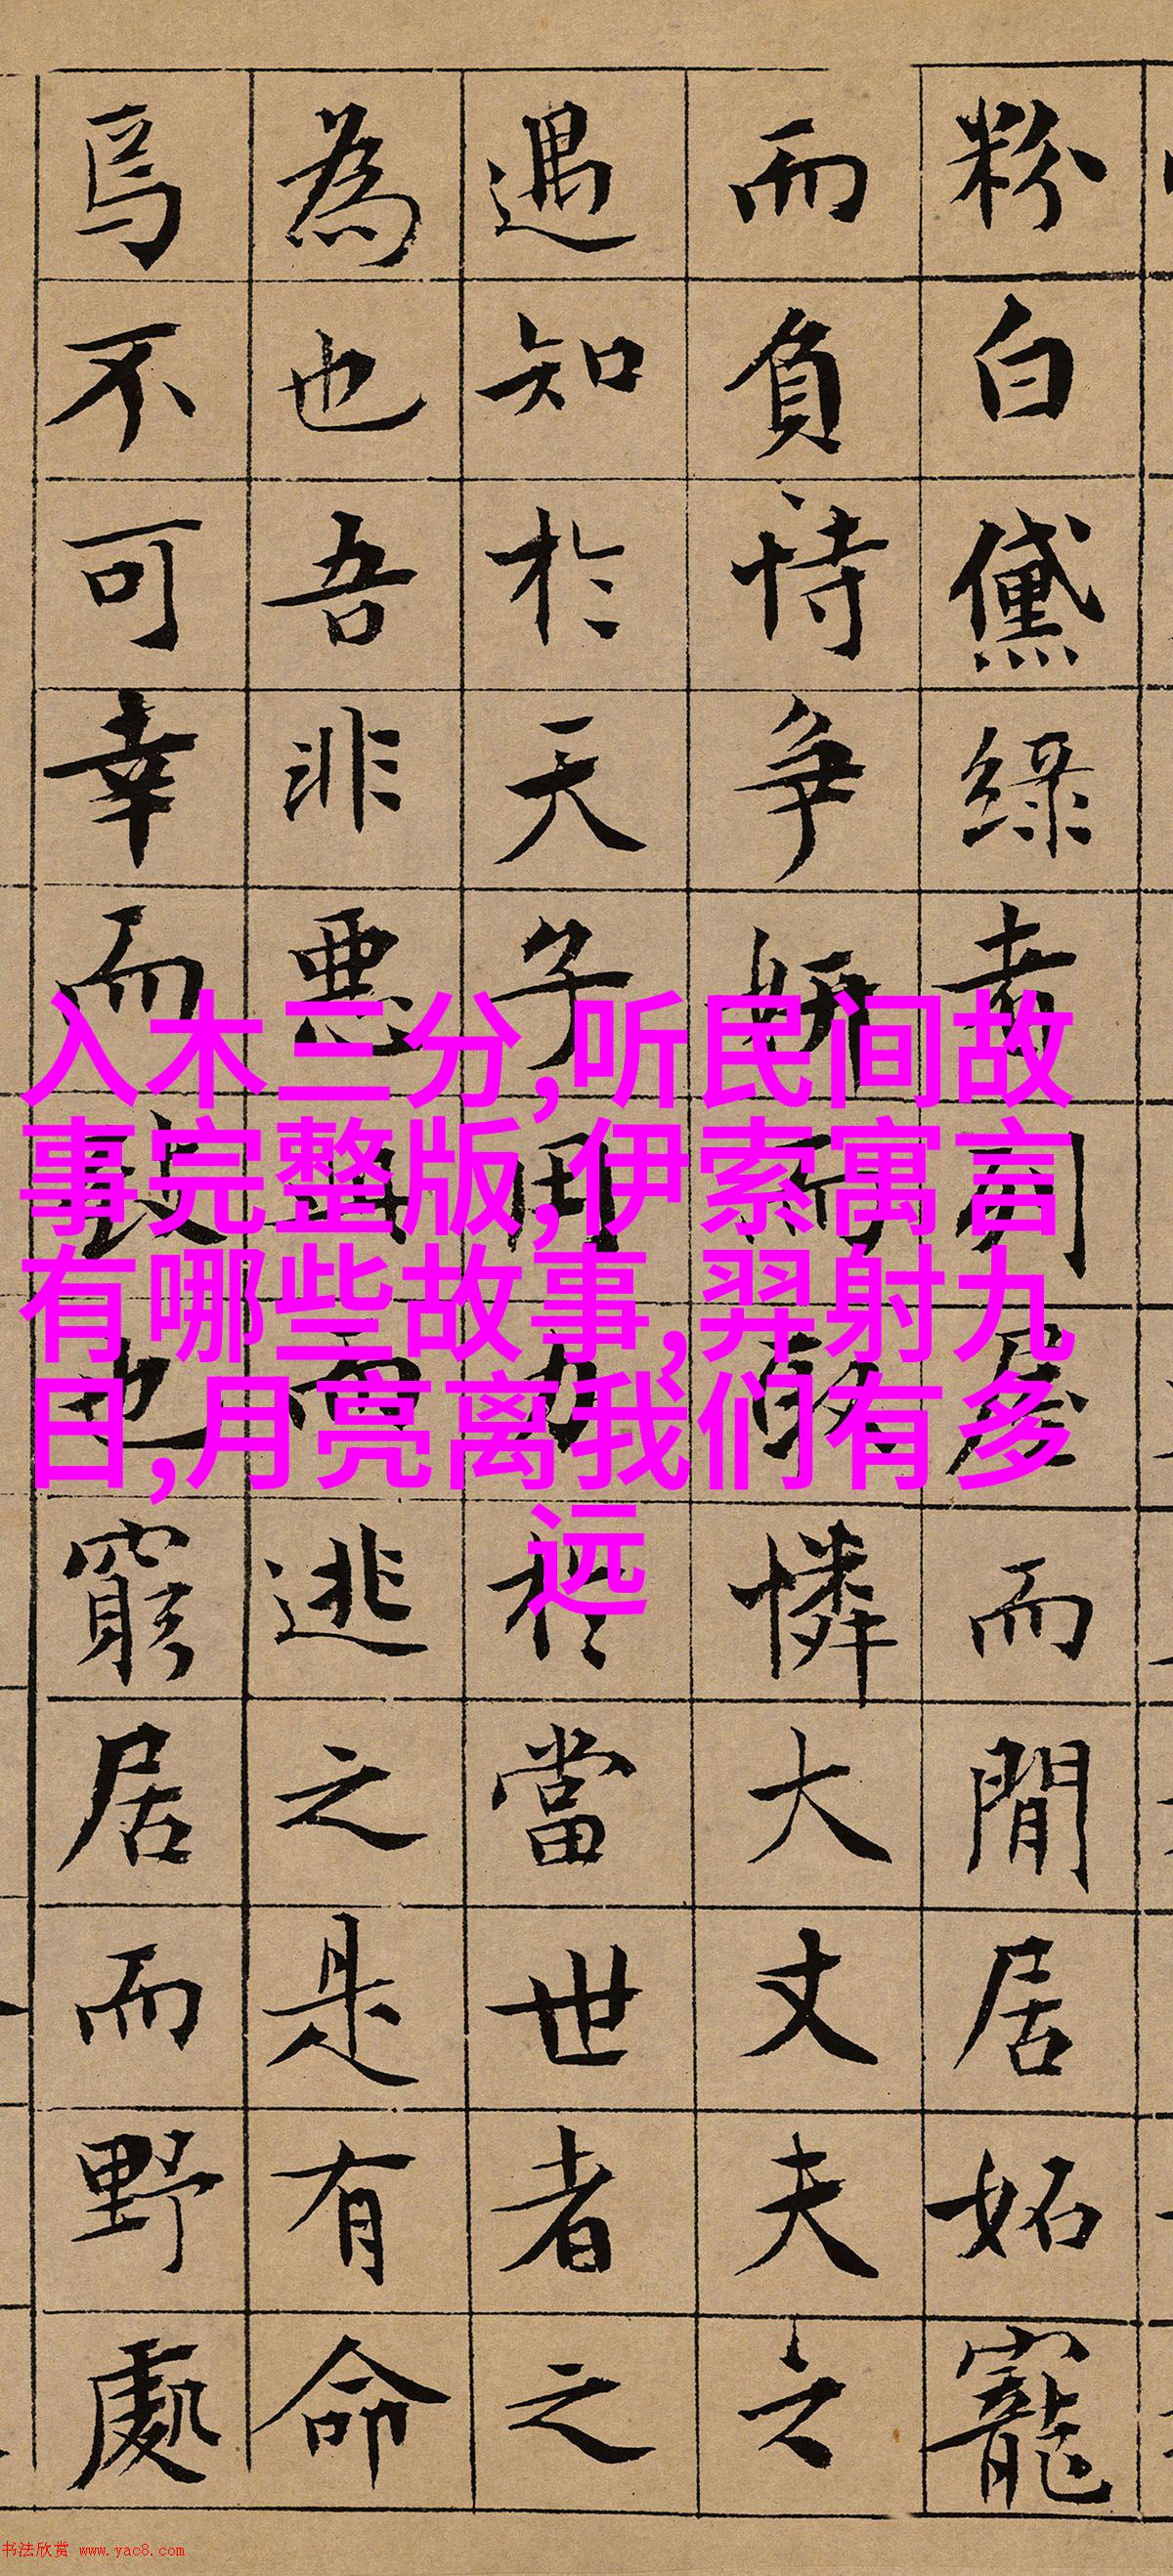 粉白黛綠者列屋而閒居妬寵
而負恃爭妍而取憐大丈夫之
遇知於天子用力於當世者之
為也吾非惡此而逃之是有命
焉不可幸而致也窮居而野處
入木三分,听民间故
事完整版,伊索寓言
有哪些故事,羿射九
日,月亮离我们有多
远
书法欣赏 www.yac8.com